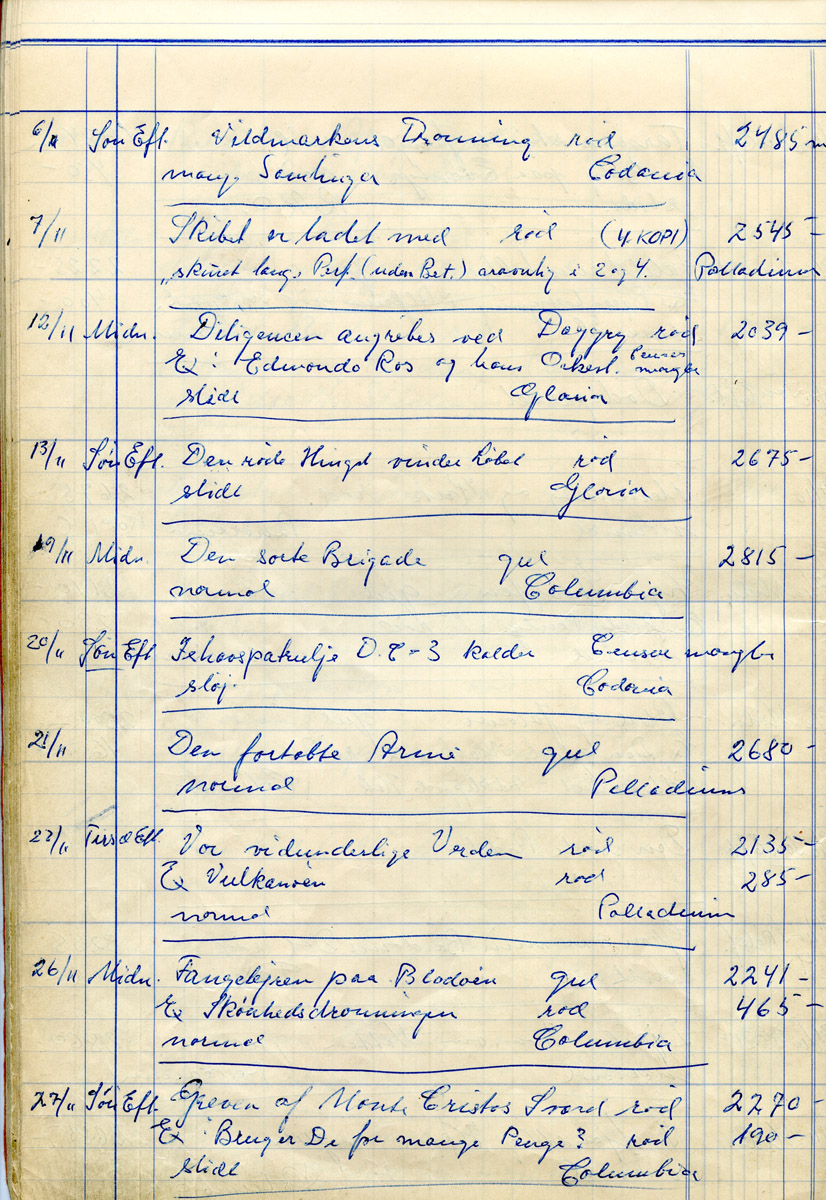 6/11 Søn Eft. Vildmarkens Dronning rød 2485 m
mange Samlinger Codania
7/11 Skibet er ladet med rød (4. KOPI) 2545 –
"skinet lang, Perf. (uden Bet.) i 2 og 4. Palladium
12/11 Midn. Diligencen angribes ved Daggry rød 2039 –
Ex: Edmondo Ros og hans Orkest. Censur mangler
slidt Gloria
13/11 Søn Eft. Den røde Hingst vinder Løbet rød 2675 –
slidt Gloria
19/11 Midn. Den sorte Brigade gul 2815 –
normal Columbia
20/11 Søn Eft Ishavspatrulje D.C-3 kalder Censur mangler
sløj. Codania
21/11 Den fortabte Armé gul 2680 –
normal Palladium
22/11 Tirsd Eft. Vor vidunderlige Verden rød 2135 –
Ex Vulkanøen rød 285 –
normal Palladium
26/11 Midn. Fangelejren paa Blodøen gul 2241 –
Ex Skønhedsdronningen rød 465 –
normal Columbia
27/11 Søn Eft. Greven af Monte Cristos Sværd rød 2270 –
Ex: Bruger De for mange Penge? rød 190 –
slidt Columbia